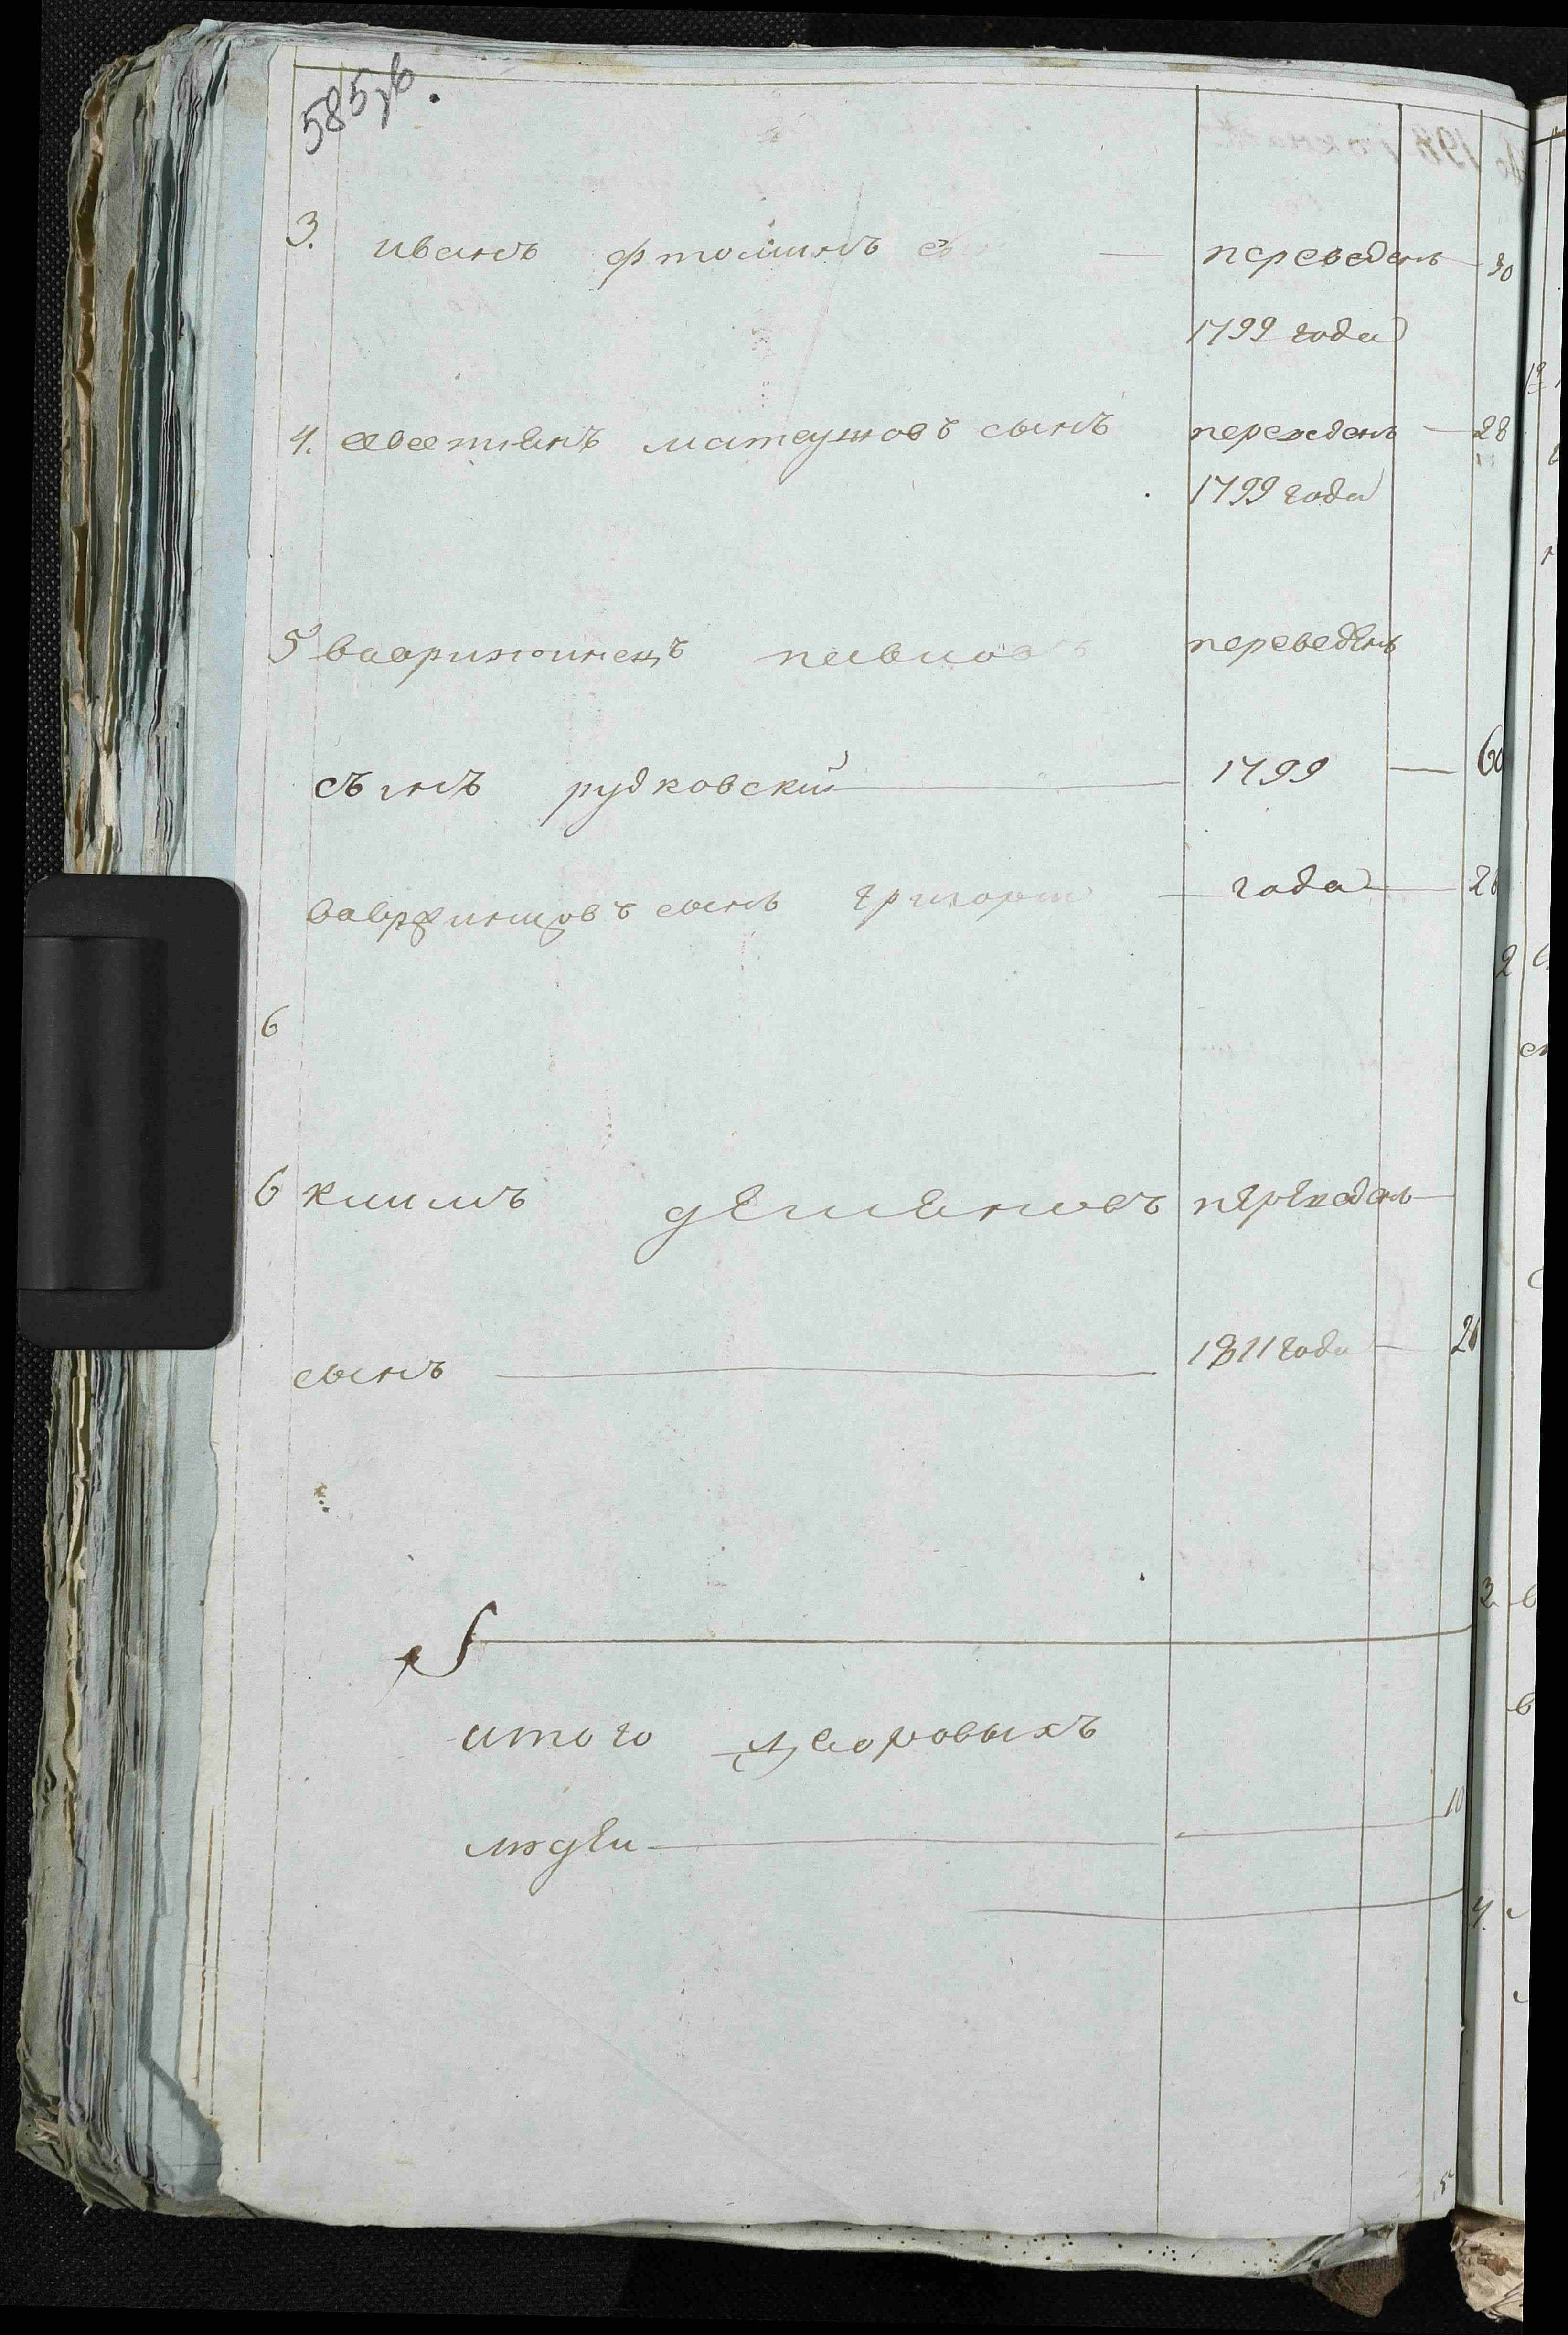 585,б.
3. иванъ фтоминъ с — переведенъ 30
1799 года
4. севестиянъ матеушовъ сынъ переведенъ — 28
1799 года
5 павловъ переведенъ
сынъ рудковский — 1799 — 60
сынъ григори — года — 28
6
6 климъ демяновъ переведенъ —
сынъ — 1811 года — 26
итого дворовыхъ
людеи — 10